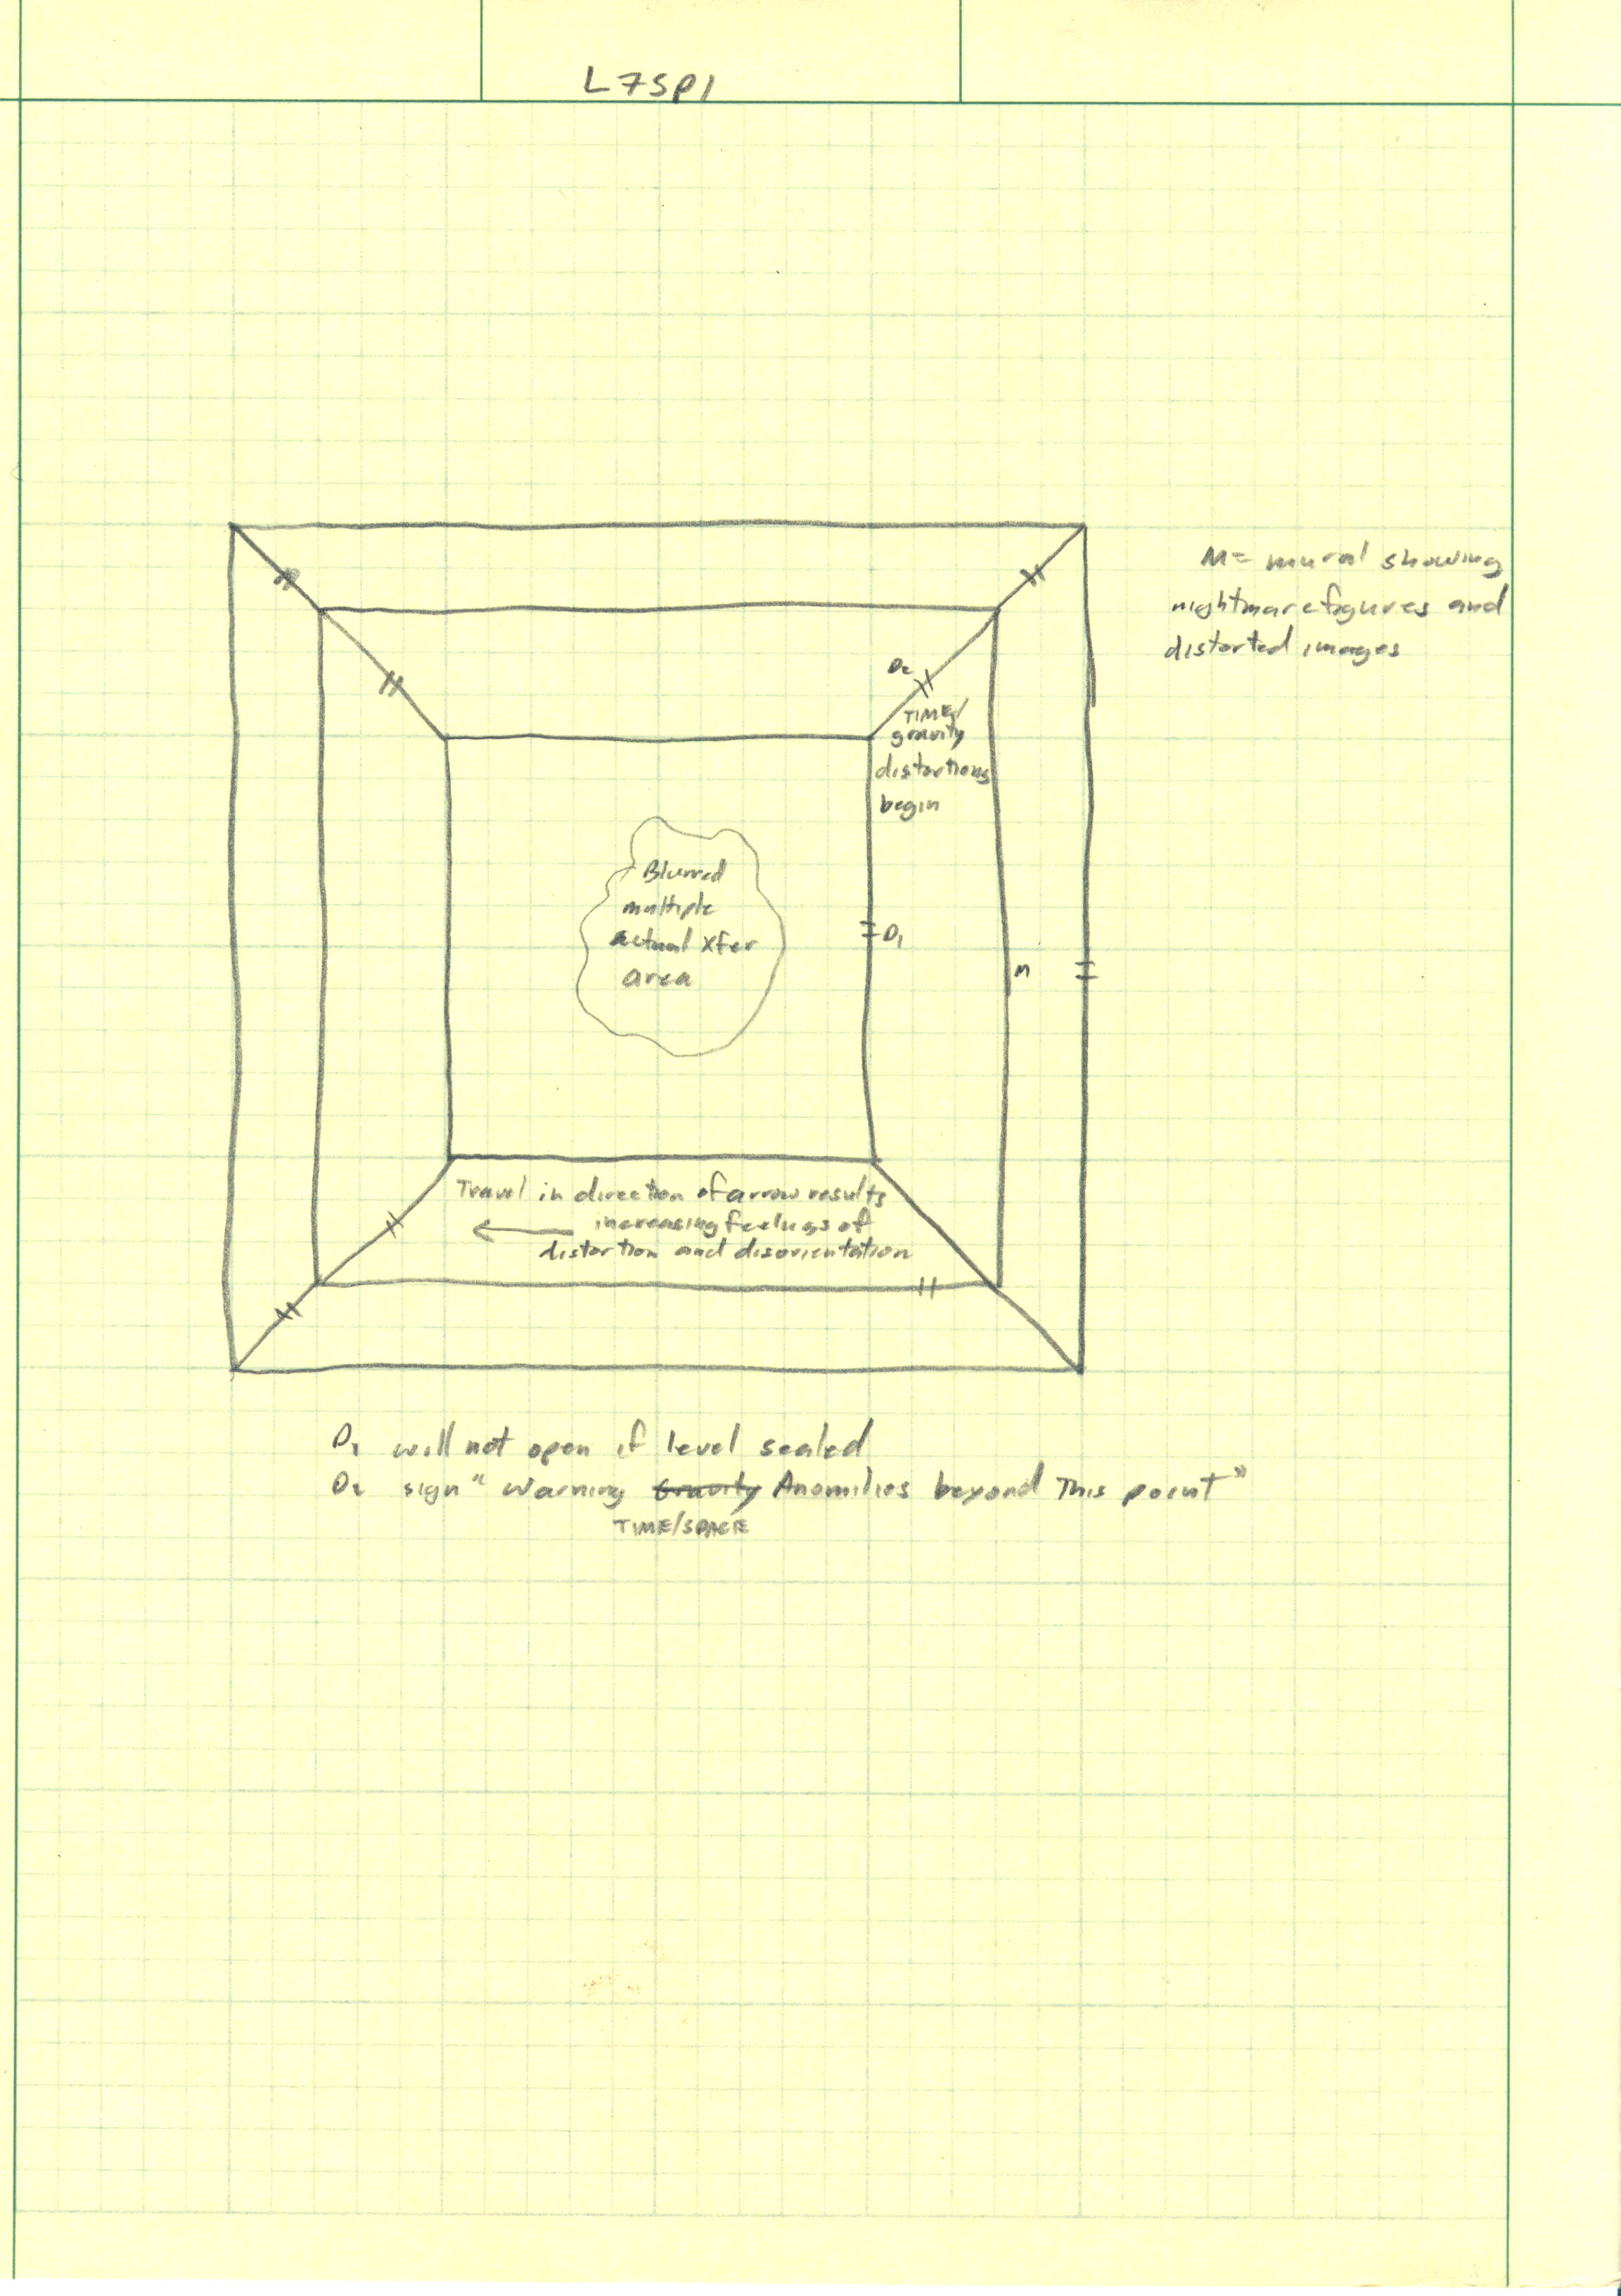 L7SP1
M= mural showing
nightmare figures and
distorted images
D2
TIME/
gravity
distortions
begin
Blurred
multiple
actual xfer
area
D1
M
Travel in direction of arrow results
increasing feelings of
distortion and disorientation
D1 will not open if level sealed
D2 sign "Warning Gravity Anomilies beyond This point"
TIME/SPACE